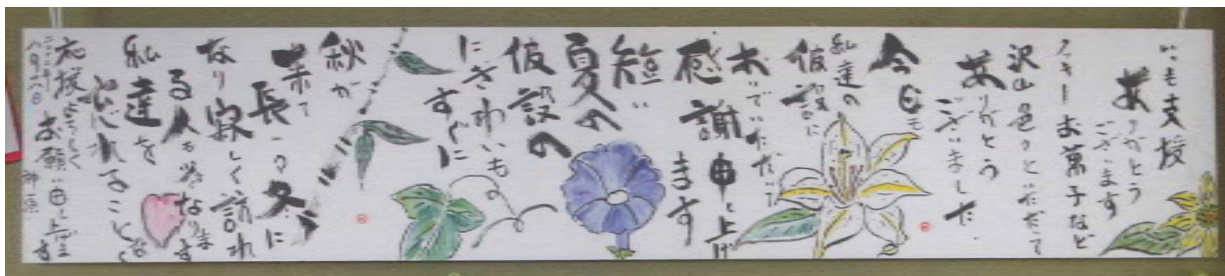 いつも支援
ありがとう
ございます
クッキーお菓子など
沢山色々といただいて
ありがとう
ございました
今日モ
私達の
仮設に
おいでいただいて
感謝申し上げ
ます
短い
夏への
仮設の
にぎわいも
すぐに
秋が
来て
長い冬に
なり寂しく訪れ
る人も少なくなります
私達を
忘れることなく
応援よろしく
お願い申し上げます
二〇一二年
八月十八日